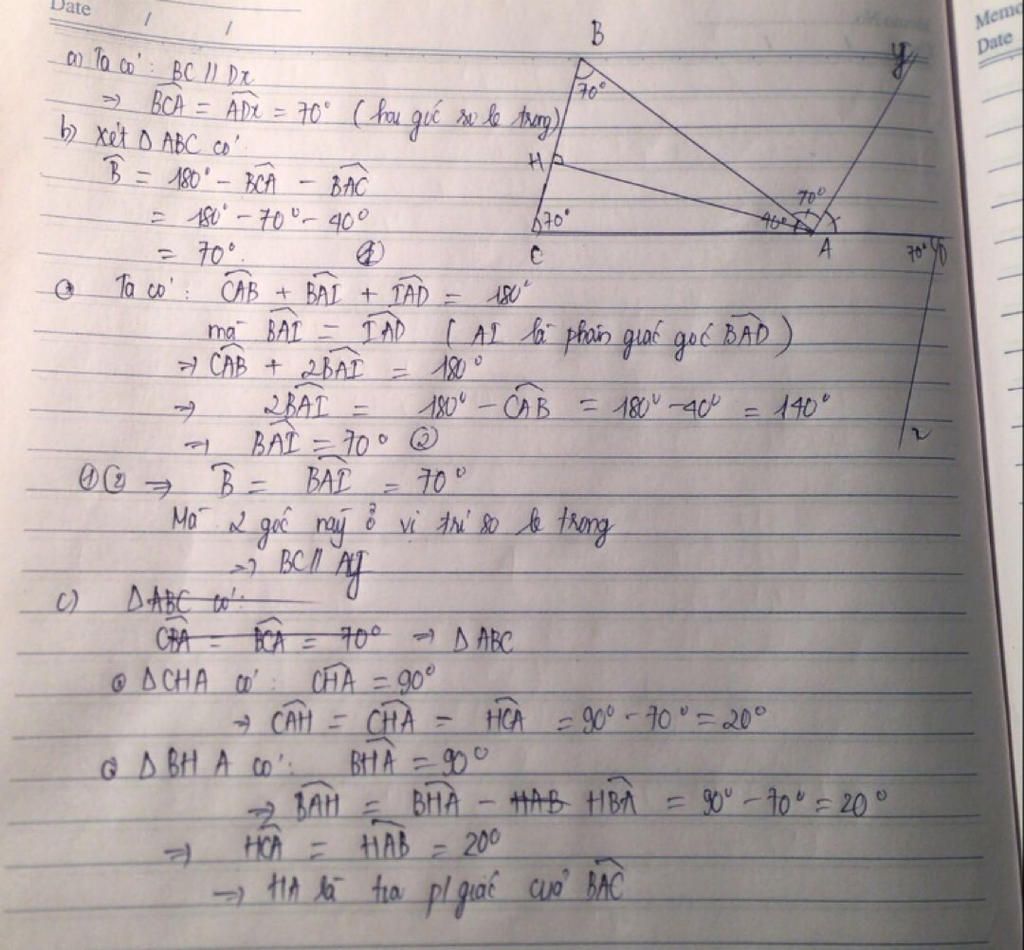 Date / /
Memo
Date
a) Ta có: BC // Dx
=> BCA = ADx = 70° (hai góc so le trong)
b) xét Δ ABC có:
B = 180° - BCA - BAC
= 180° - 70° - 40°
= 70°. ①
Ta có: CAB + BAI + IAD = 180°
mà BAI = IAD (AI là phân giác góc BAD)
=> CAB + 2BAI = 180°
=> 2BAI = 180° - CAB = 180° - 40° = 140°
=> BAI = 70° ②
①② => B = BAI = 70°
Mà 2 góc này ở vị trí so le trong
=> BC // Ay
c) ΔABC có:
CBA = BCA = 70° => Δ ABC
ΔCHA có: CHA = 90°
=> CAH = CHA - HCA = 90° - 70° = 20°
Δ BH A có: BHA = 90°
=> BAH = BHA - HAB HBA = 90° - 70° = 20°
=> HCA = HAB = 20°
=> HA là tia p/giác của BAC
B
y
70°
H
70°
70°
40°
C
A
70°
D
x